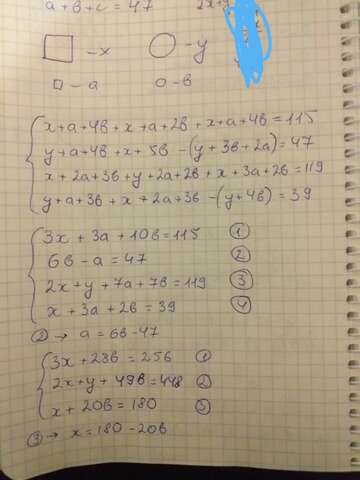 a+b+c=47 2x+y
□ – x ○ – y
□ – a ○ – b
x+a+4b+x+a+2b+x+a+4b=115
y+a+4b+x+5b-(y+3b+2a)=47
x+2a+3b+y+2a+2b+x+3a+2b=119
y+a+3b+x+2a+3b-(y+4b)=39
3x+3a+10b=115 ①
6b-a=47 ②
2x+y+7a+7b=119 ③
x+3a+2b=39 ④
② → a=6b-47
3x+28b=256 ①
2x+y+49b=448 ②
x+20b=180 ③
③ → x=180-20b